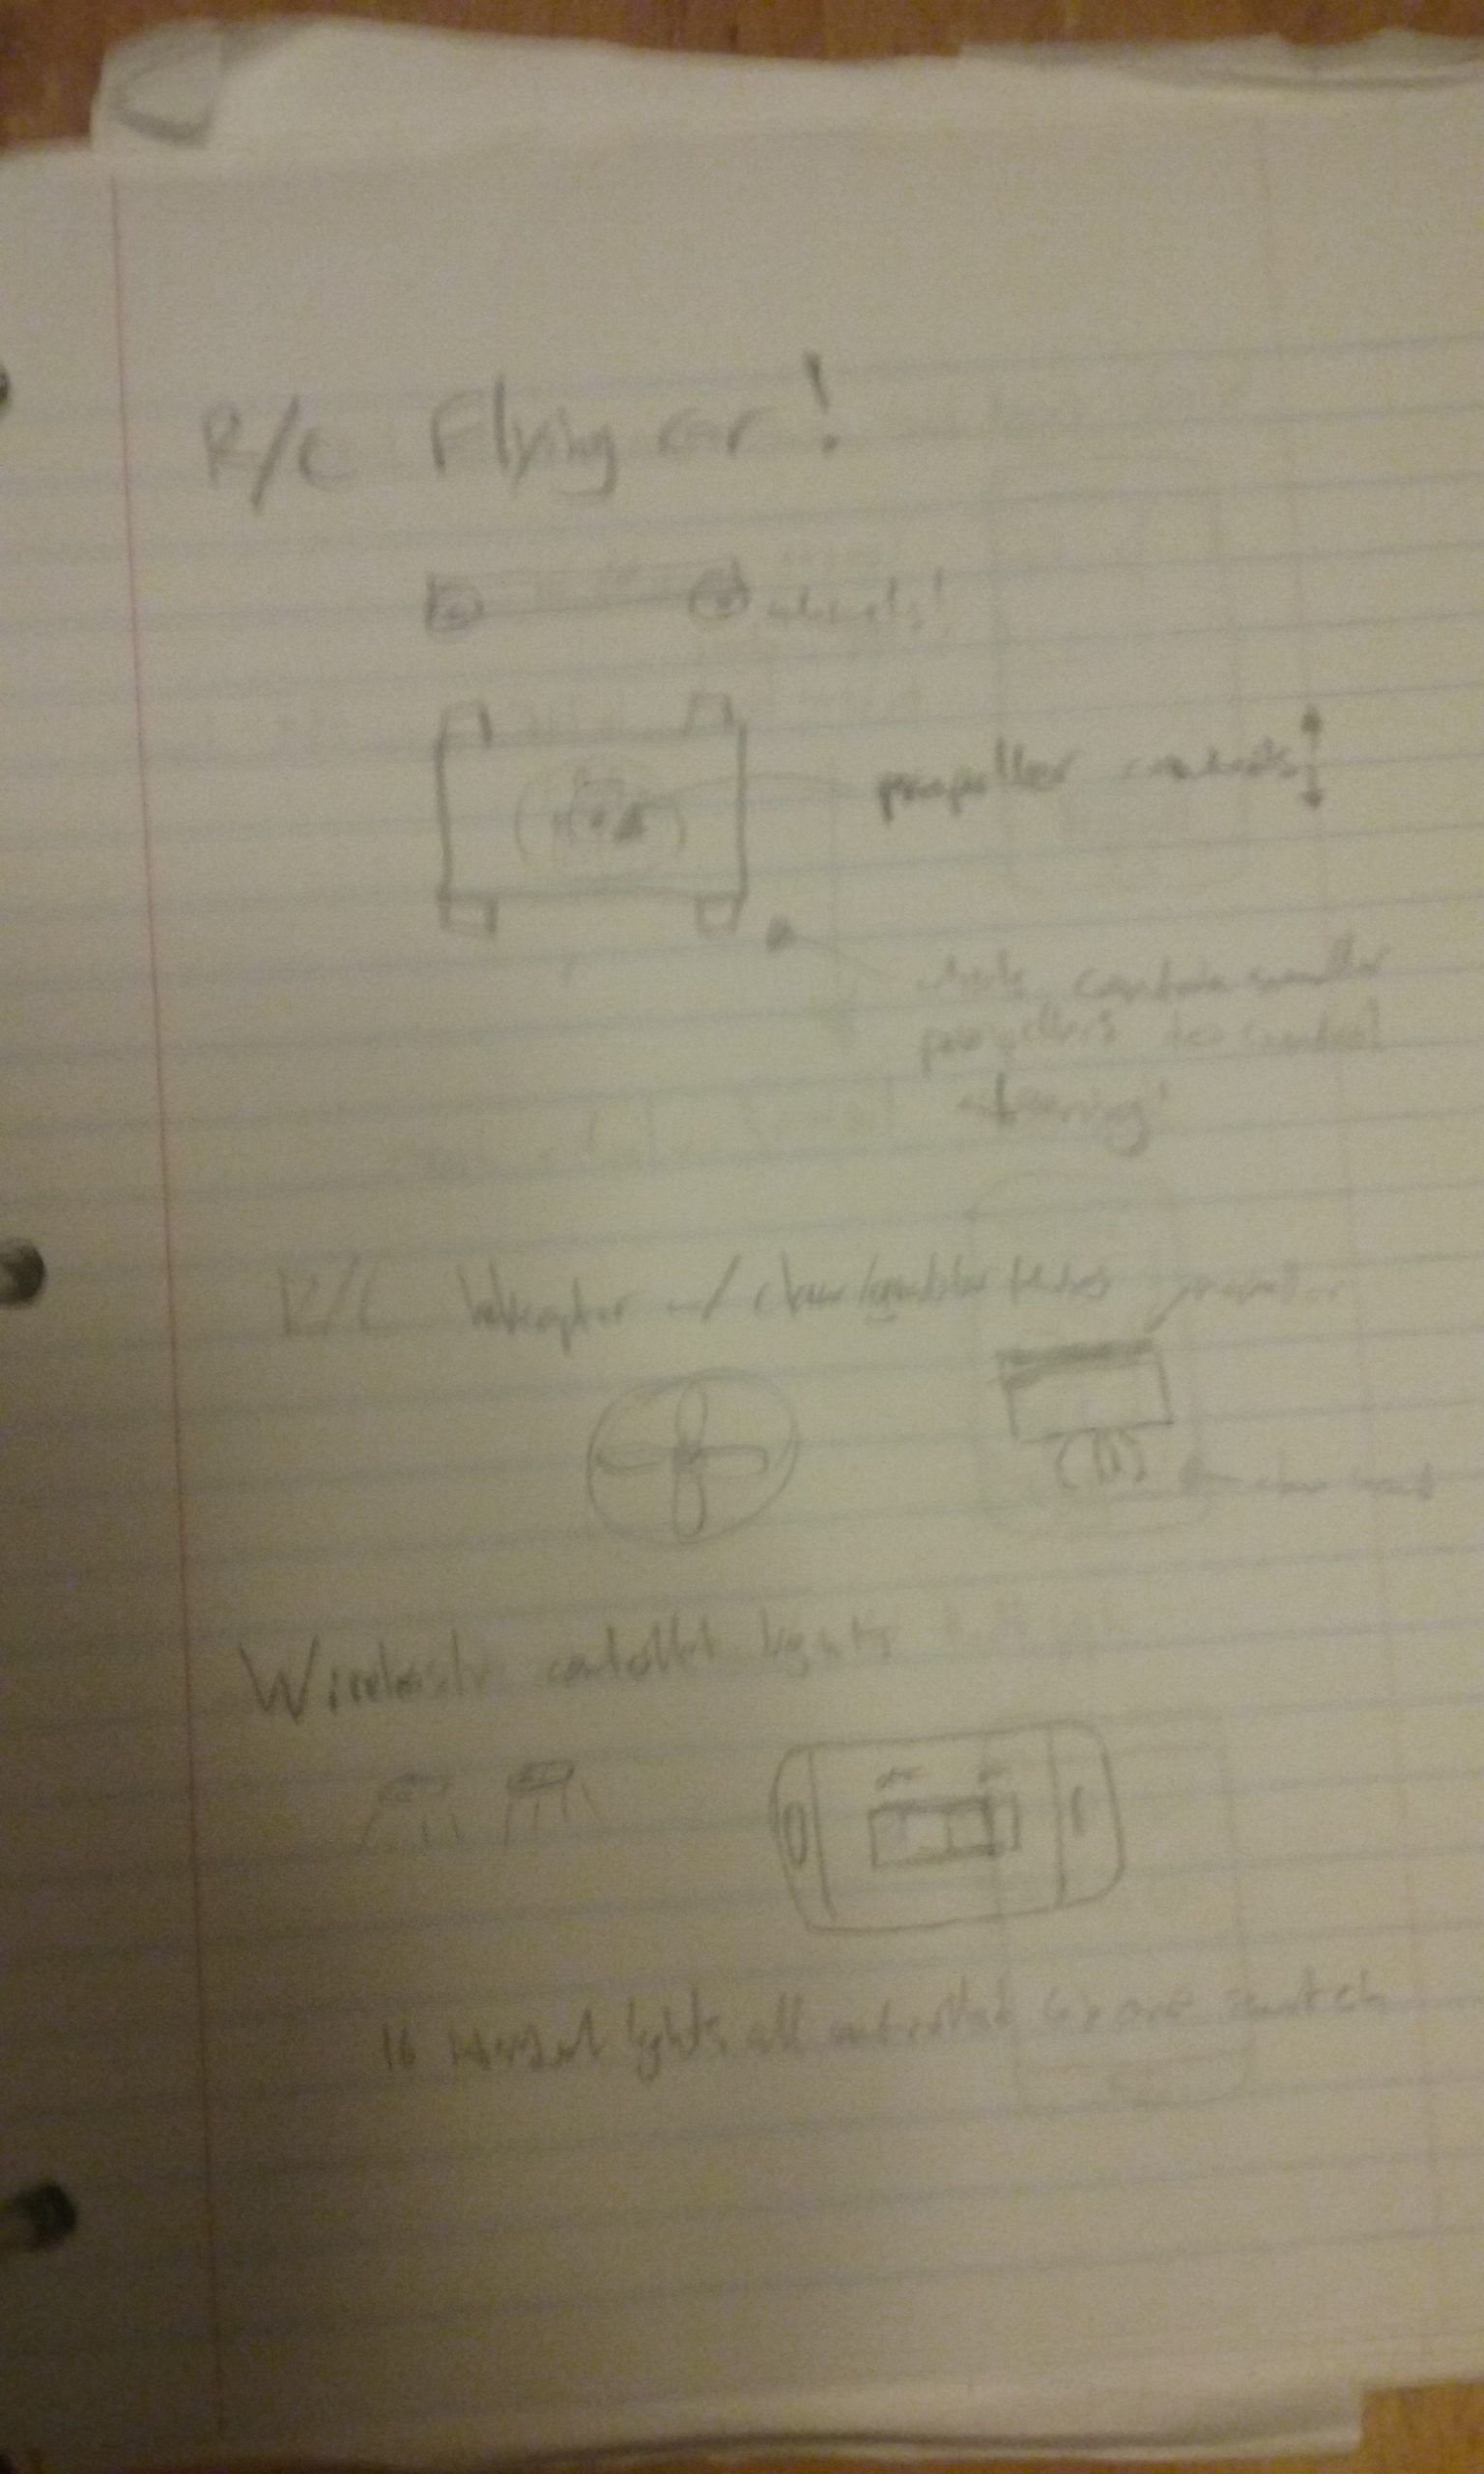 R/C Flying car!
wheels!
propeller controls
contain smaller
propellers to control
steering!
R/C helicopter w/ claw
propeller
claw
Wirelessly controlled lights
off on
16 lights all controlled by one switch